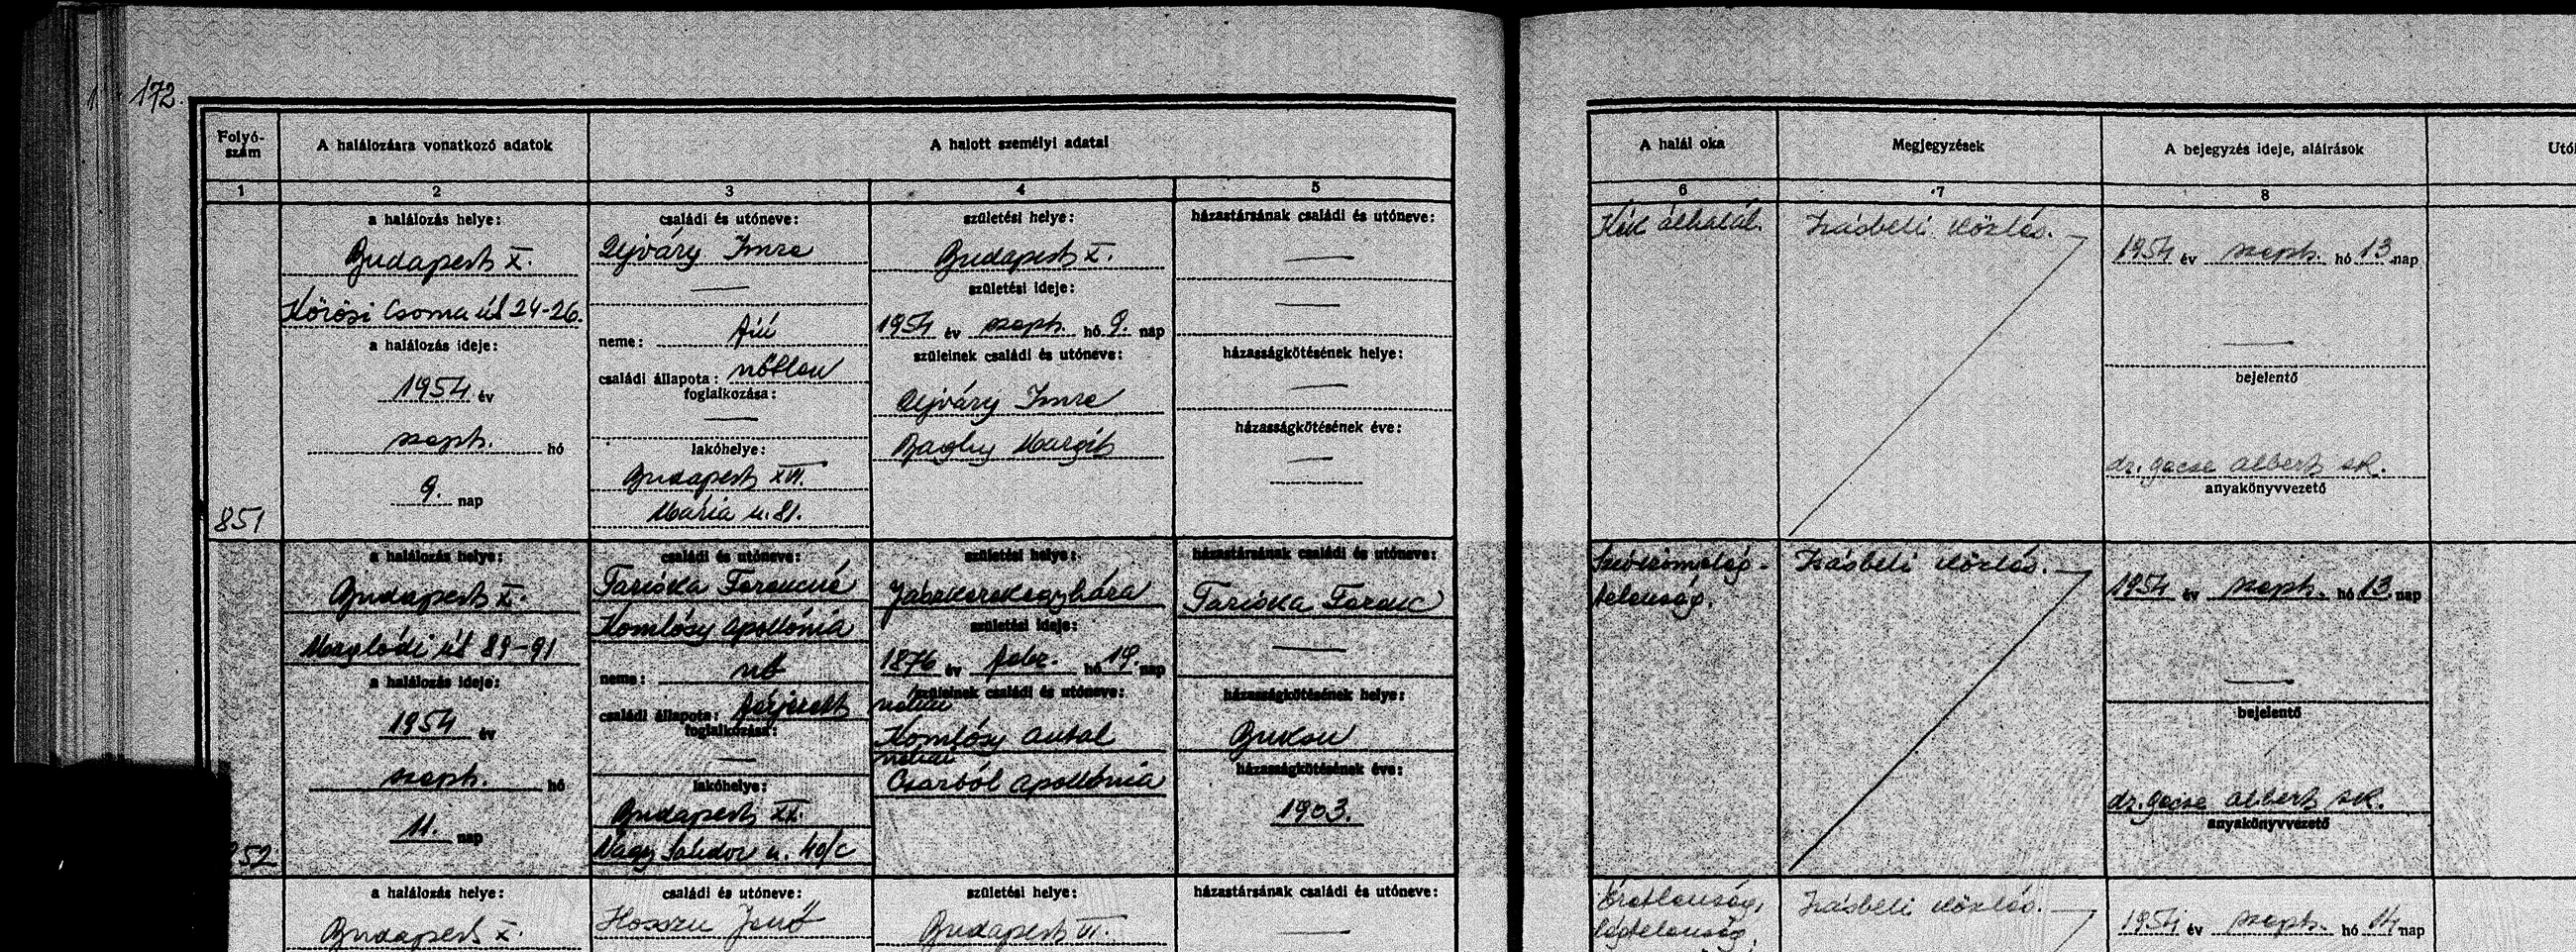 172.
Folyó-
szám
A halálozásra vonatkozó adatok
A halott személyi adatai
A halál oka
Megjegyzések
A bejegyzés ideje, aláírások
1
2
3
4
5
6
7
8
851
a halálozás helye:
Budapest X.
Kőrösi Csoma út 24-26.
a halálozás ideje:
1954 év
szept. hó
9. nap
családi és utóneve:
Ujváry Imre
neme: fiú
családi állapota: nőtlen
foglalkozása:
—
lakóhelye:
Budapest XVI.
Mária u. 81.
születési helye:
Budapest X.
születési ideje:
1954 év szept. hó 9. nap
szüleinek családi és utóneve:
Ujváry Imre
Margit
házastársának családi és utóneve:
—
—
házasságkötésének helye:
—
házasságkötésének éve:
—
Írásbeli közlés.
1954 év szept. hó 13 nap
—
bejelentő
dr. Gecse Albert sk.
anyakönyvvezető
852
a halálozás helye:
Budapest X.
Maglódi út 89-91
a halálozás ideje:
1954 év
szept. hó
11. nap
családi és utóneve:
Taricska Ferencné
Komlósy Apollónia
neme: nő
családi állapota: férjezett
foglalkozása:
—
lakóhelye:
Budapest XX.
Nagy Sándor u. 40/c
születési helye:
Jászkerekegyháza
születési ideje:
1876 év febr. hó 19. nap
szüleinek családi és utóneve:
néhai
Komlósy Antal
néhai
Apollónia
házastársának családi és utóneve:
Taricska Ferenc
—
házasságkötésének helye:
házasságkötésének éve:
1903.
Szívizomelég-
telenség.
Írásbeli közlés.
1954 év szept. hó 13 nap
—
bejelentő
dr. Gecse Albert sk.
anyakönyvvezető
a halálozás helye:
Budapest X.
családi és utóneve:
Hosszu Jenő
születési helye:
Budapest VI.
házastársának családi és utóneve:
—
Éretlenség,
légtelenség.
Írásbeli közlés.
1954 év szept. hó 14 nap